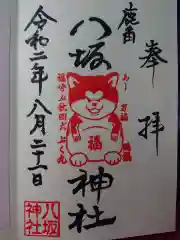 奉拝
鹿角
八坂神社
福
令和二年八月二十一日
八坂
神社